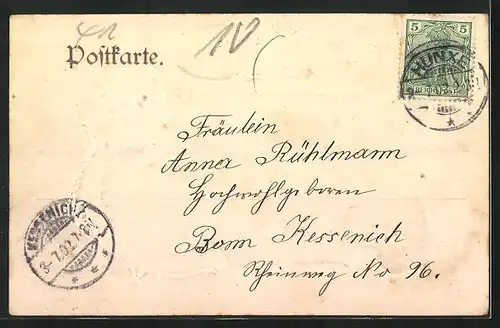 Postkarte.
5
REICHSPOST
HÜNXE
Fräulein
Anna Rühlmann
Hochwohlgeboren
Bonn Kessenich
Rheinweg No 96.
KESSENICH
3. 7.02.7-8V